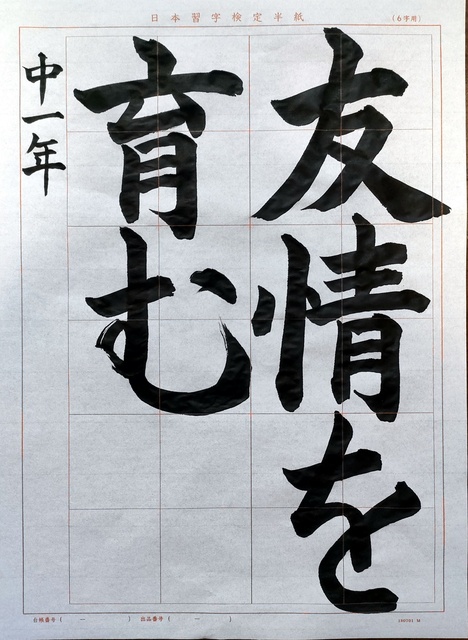 日本習字検定半紙
(6字用)
友情を
育む
中一年
台帳番号(　ー　)
出品番号(　ー　)